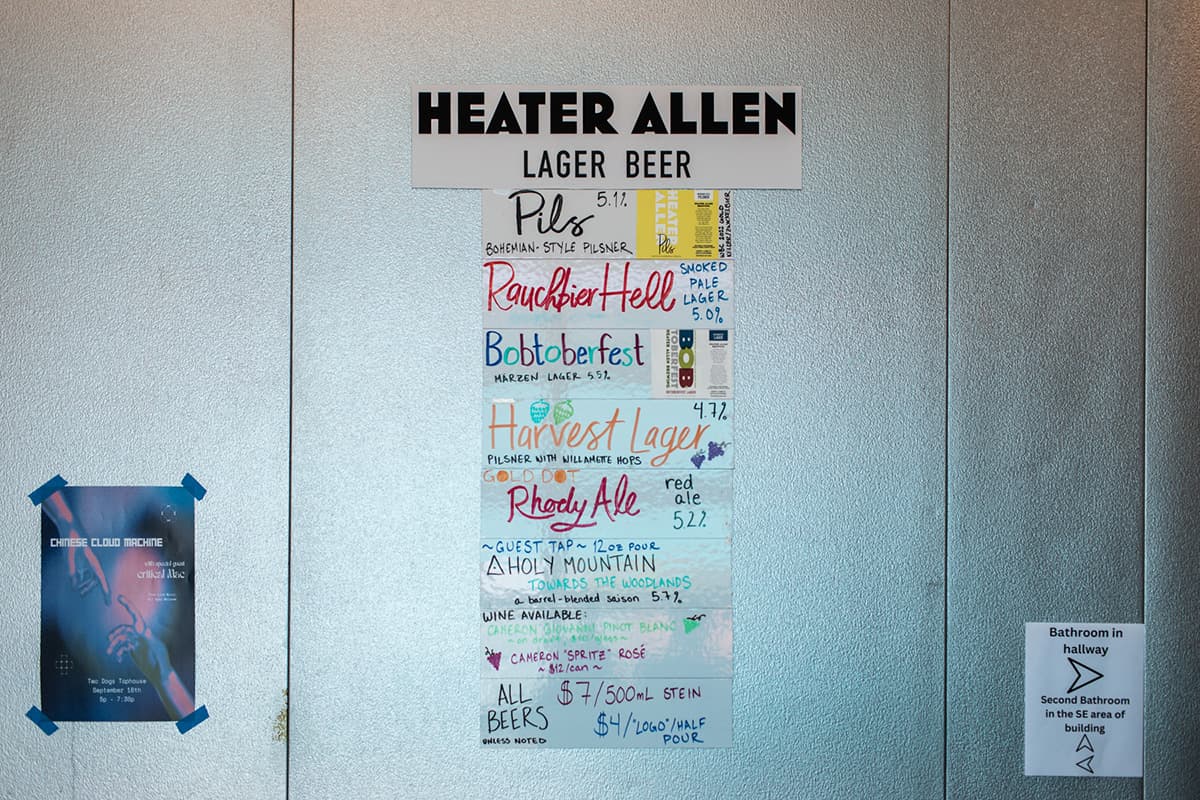 HEATER ALLEN
LAGER BEER
Pils 5.1%
BOHEMIAN-STYLE PILSNER
HEATER
ALLEN
Pils
WBC 2022 GOLD
Rauchbier Hell
SMOKED
PALE
LAGER
5.0%
Bobtoberfest
MARZEN LAGER 5.5%
BOB
TOBERFEST
HEATER ALLEN BREWING
Harvest Lager 4.7%
PILSNER WITH WILLAMETTE HOPS
GOLD DOT
Rhody Ale
red
ale
5.2%
~GUEST TAP~ 12oz POUR
HOLY MOUNTAIN
TOWARDS THE WOODLANDS
a barrel-blended saison 5.7%
WINE AVAILABLE:
CAMERON GIOVANNI PINOT BLANC
CAMERON "SPRITZ" ROSÉ
~$12/can~
ALL
BEERS
UNLESS NOTED
$7/500mL STEIN
$4/"LOGO"/HALF
POUR
CHINESE CLOUD MACHINE
with special guest
critical Mac
Two Dogs Taphouse
September 16th
5p - 7:30p
Bathroom in
hallway
Second Bathroom
in the SE area of
building